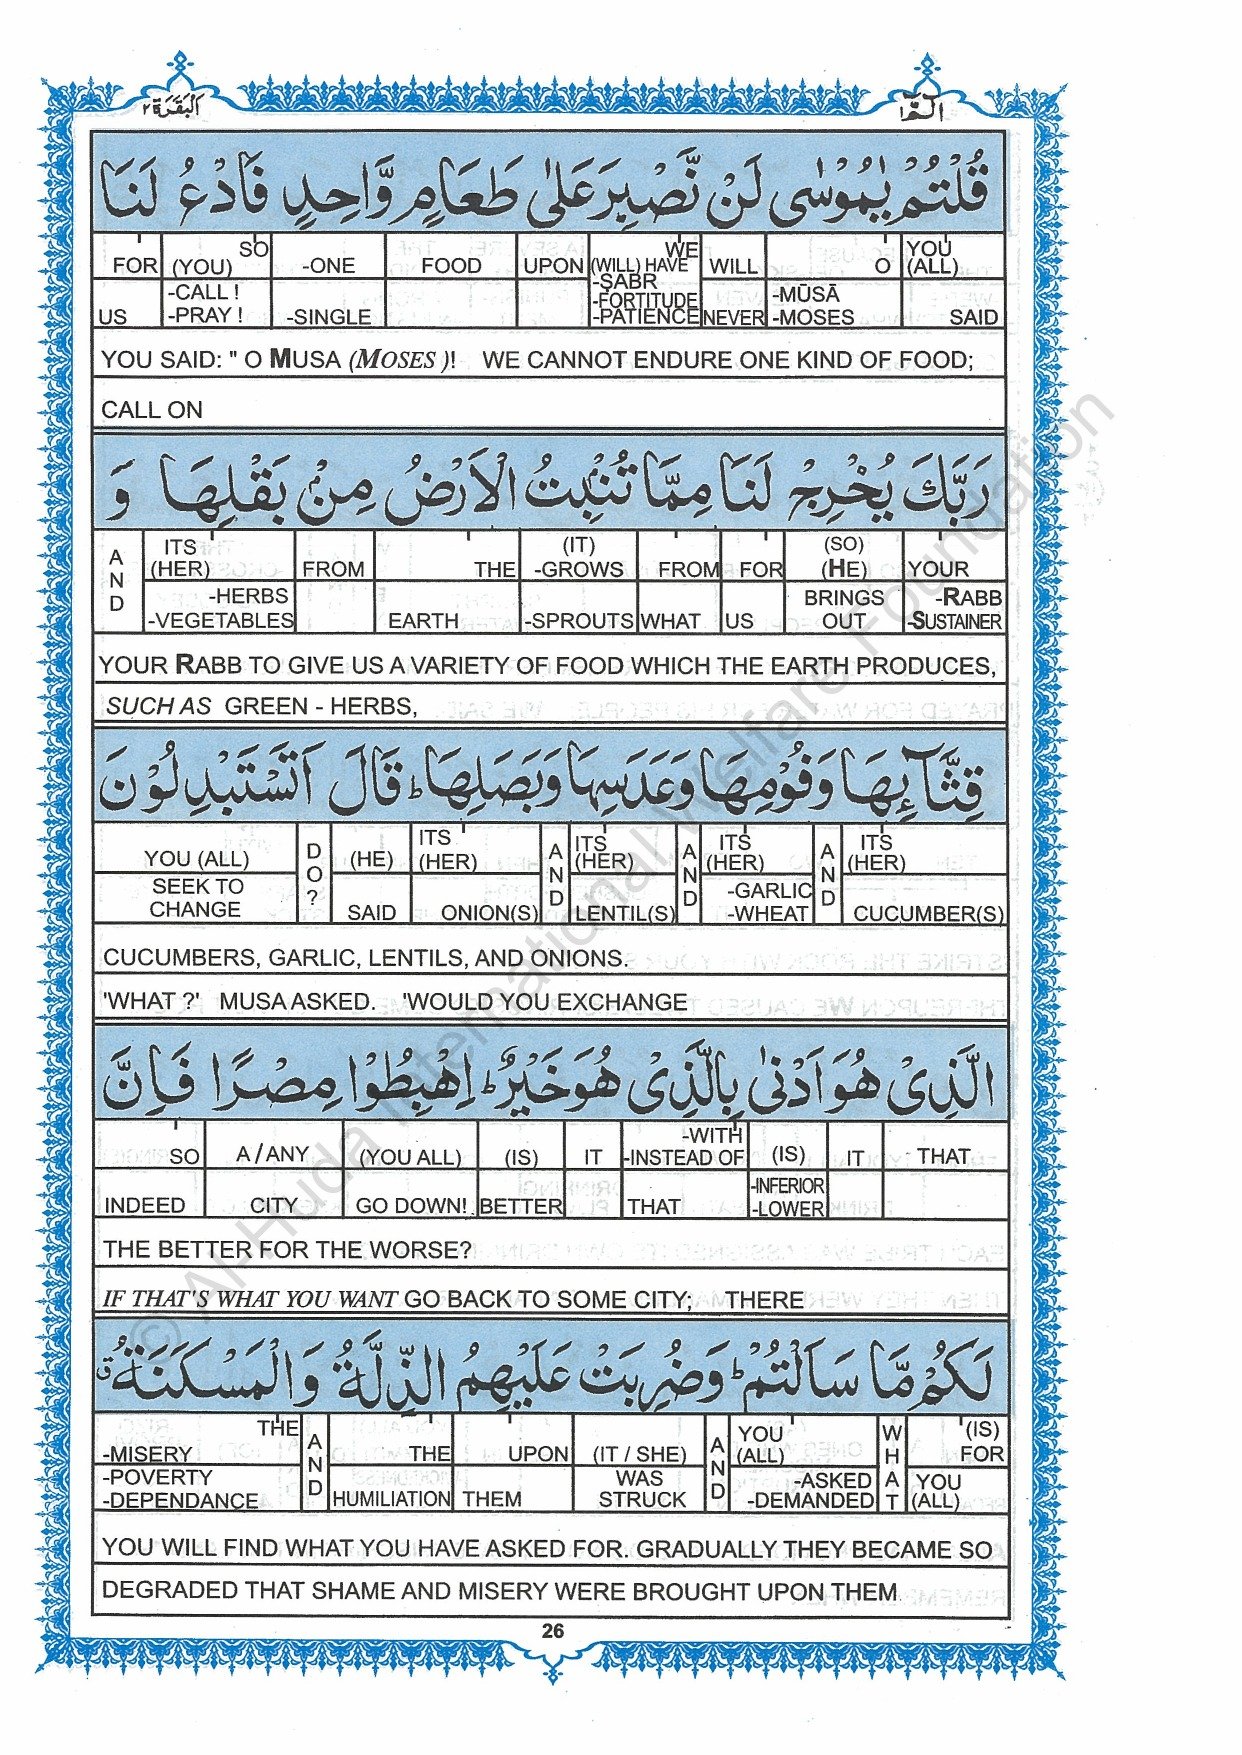 البَقَرَة ٢
الٓمّٓ ١
قُلْتُمْ يٰمُوْسٰى لَنْ نَّصْبِرَ عَلٰى طَعَامٍ وَّاحِدٍ فَادْعُ لَنَا
FOR | SO (YOU) | -ONE | FOOD | UPON | WE (WILL) HAVE | WILL | O | YOU (ALL)
US | -CALL ! -PRAY ! | -SINGLE | -SABR -FORTITUDE -PATIENCE | NEVER | -MŪSĀ -MOSES | SAID
YOU SAID: " O MUSA (MOSES )! WE CANNOT ENDURE ONE KIND OF FOOD;
CALL ON
رَبَّكَ يُخْرِجْ لَنَا مِمَّا تُنْۢبِتُ الْاَرْضُ مِنْۢ بَقْلِهَا وَ
AND | ITS (HER) | FROM | THE | (IT) -GROWS | FROM | FOR | (SO) (HE) | YOUR
-HERBS -VEGETABLES | EARTH | -SPROUTS | WHAT | US | BRINGS OUT | -RABB -SUSTAINER
YOUR RABB TO GIVE US A VARIETY OF FOOD WHICH THE EARTH PRODUCES,
SUCH AS GREEN - HERBS,
قِثَّآئِهَا وَفُوْمِهَا وَعَدَسِهَا وَبَصَلِهَا ؕ قَالَ اَتَسْتَبْدِلُوْنَ
YOU (ALL) | DO? | (HE) | ITS (HER) | AND | ITS (HER) | AND | ITS (HER) | AND | ITS (HER)
SEEK TO CHANGE | SAID | ONION(S) | LENTIL(S) | -GARLIC -WHEAT | CUCUMBER(S)
CUCUMBERS, GARLIC, LENTILS, AND ONIONS.
'WHAT ?' MUSA ASKED. 'WOULD YOU EXCHANGE
الَّذِىْ هُوَ اَدْنٰى بِالَّذِىْ هُوَ خَيْرٌ ؕ اِهْبِطُوْا مِصْرًا فَاِنَّ
SO | A / ANY | (YOU ALL) | (IS) | IT | -WITH -INSTEAD OF | (IS) | IT | THAT
INDEED | CITY | GO DOWN! | BETTER | THAT | -INFERIOR -LOWER
THE BETTER FOR THE WORSE?
IF THAT'S WHAT YOU WANT GO BACK TO SOME CITY; THERE
لَكُمْ مَّا سَاَلْتُمْ ؕ وَضُرِبَتْ عَلَيْهِمُ الذِّلَّةُ وَالْمَسْكَنَةُ ۗ
THE -MISERY | AND | THE | UPON | (IT / SHE) | AND | YOU (ALL) | WHAT | (IS) FOR
-POVERTY -DEPENDANCE | HUMILIATION | THEM | WAS STRUCK | -ASKED -DEMANDED | YOU (ALL)
YOU WILL FIND WHAT YOU HAVE ASKED FOR. GRADUALLY THEY BECAME SO
DEGRADED THAT SHAME AND MISERY WERE BROUGHT UPON THEM
26
© Al-Huda International Welfare Foundation